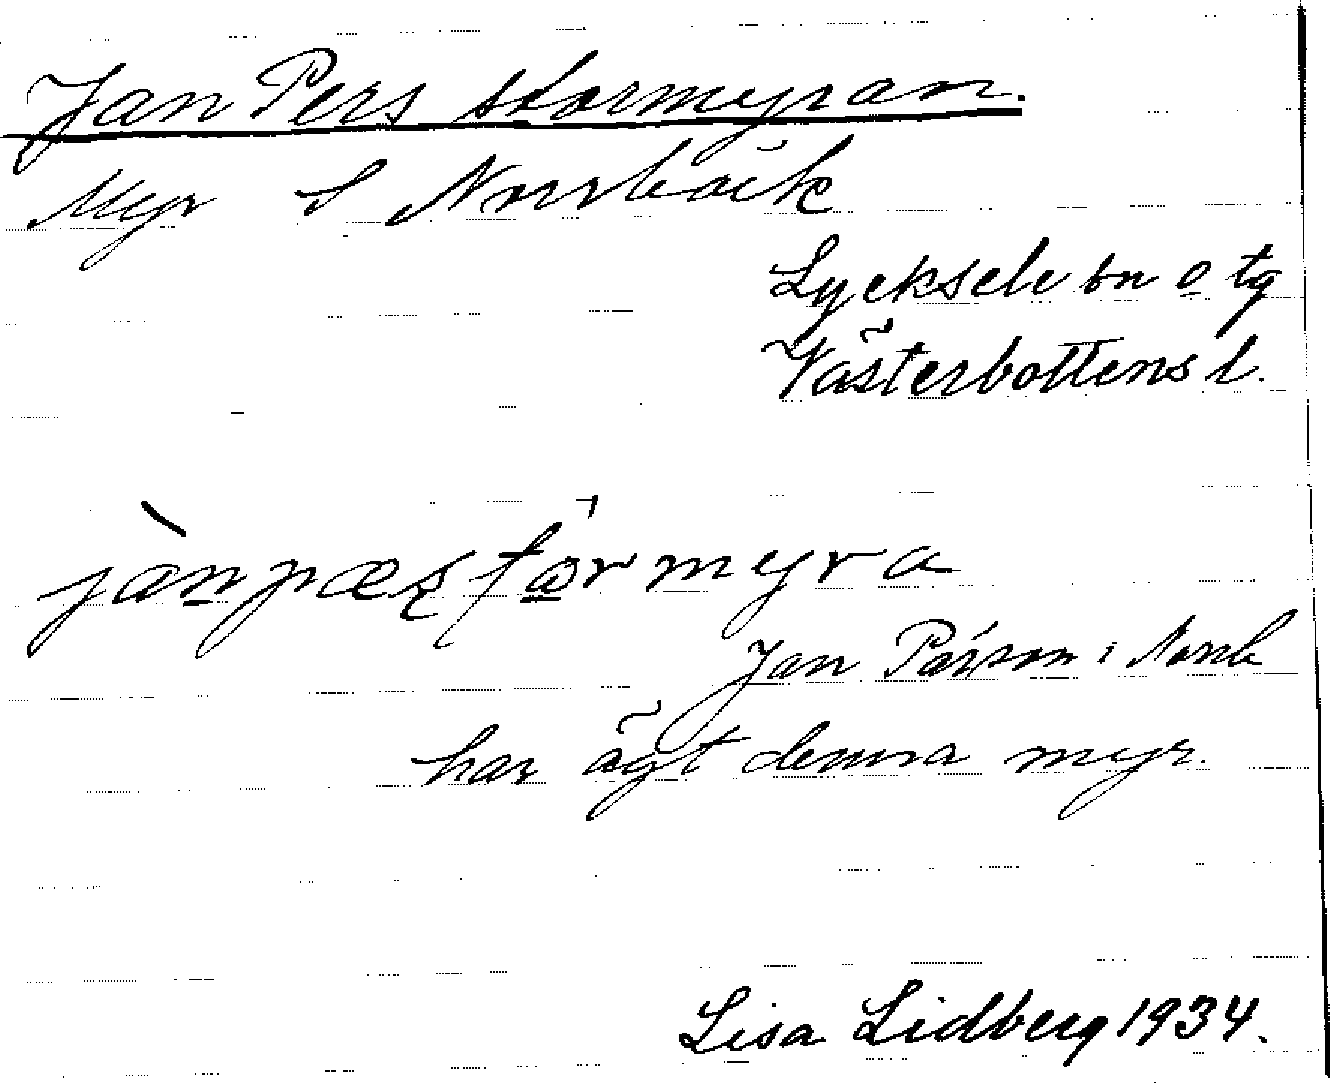 Jan Pers stormyran.
Myr S Norrbäck
Lycksele sn o tg
Västerbottens l.
jànpæʂstårmyra
Jan Parson i Norrb
har ägt denna myr.
Lisa Lidberg 1934.